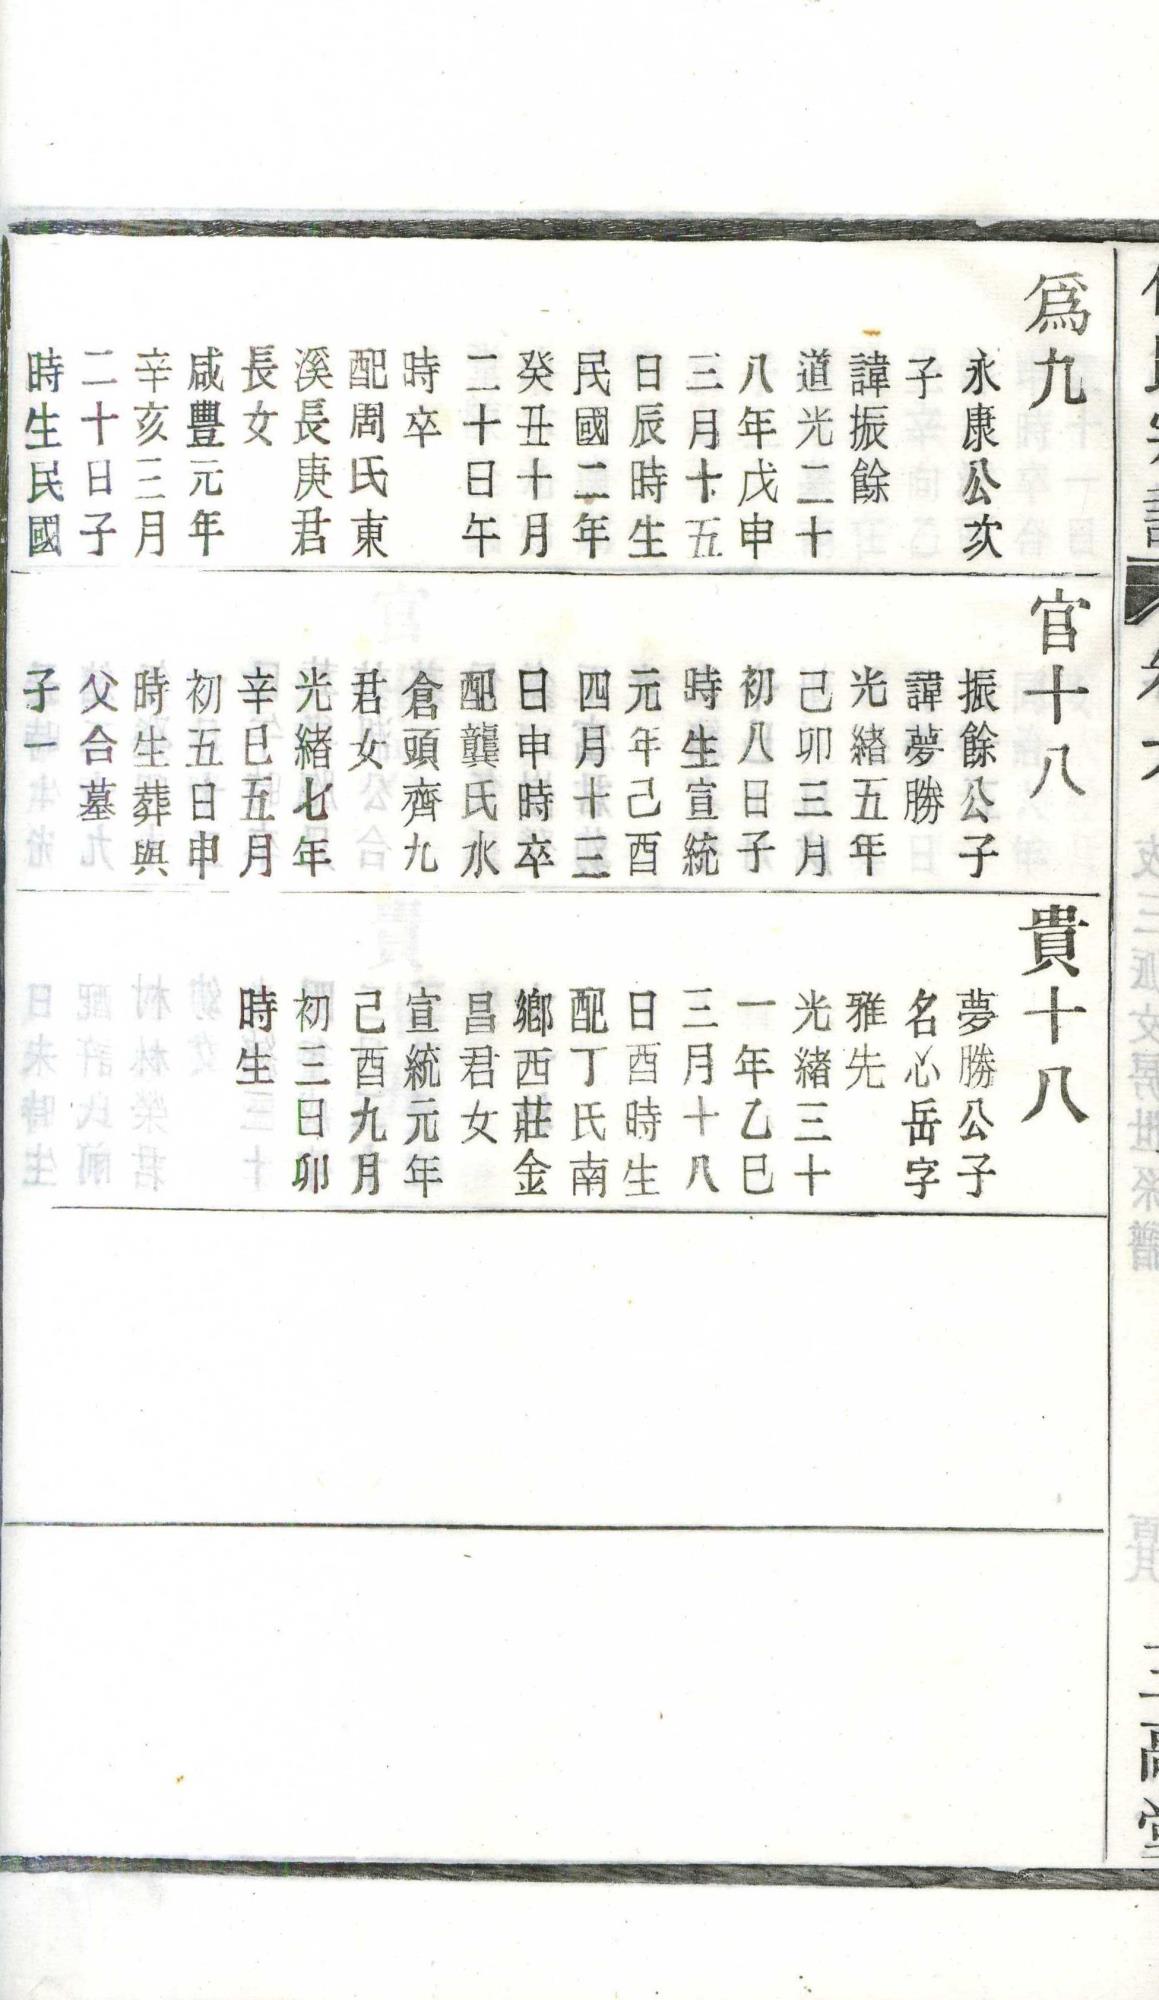 爲九
永康公次
子
諱振餘
道光二十
八年戊申
三月十五
日辰時生
民國二年
癸丑十月
二十日午
時卒
配周氏東
溪長庚君
長女
咸豐元年
辛亥三月
二十日子
時生民國
官十八
振餘公子
諱夢勝
光緒五年
己卯三月
初八日子
時生宣統
元年己酉
四月十三
日申時卒
配龔氏水
倉頭齊九
君女
光緒七年
辛巳五月
初五日申
時生葬與
父合墓
子一
貴十八
夢勝公子
名心岳字
雅先
光緒三十
一年乙巳
三月十八
日酉時生
配丁氏南
鄉西莊金
昌君女
宣統元年
己酉九月
初三日卯
時生